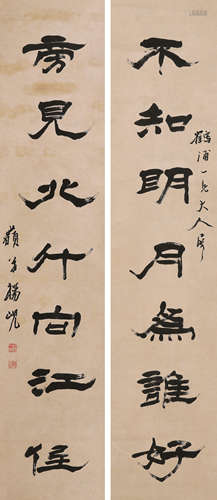 不知明月為誰好
鶴浦一兄大人屬
旁見北斗向江低
蘋